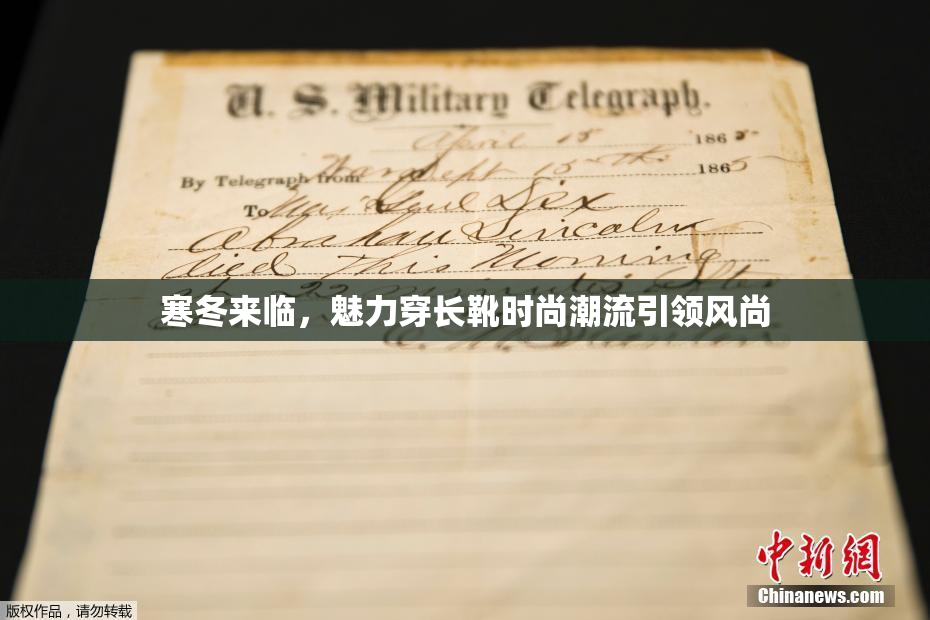 U. S. Military Telegraph.
April 15 1865-
By Telegraph from War Dept 15th 1865
To Maj Genl Dix
Abraham Lincoln
died This Morning
at 22 minutes after
寒冬来临，魅力穿长靴时尚潮流引领风尚
中新網
Chinanews.com
版权作品，请勿转载